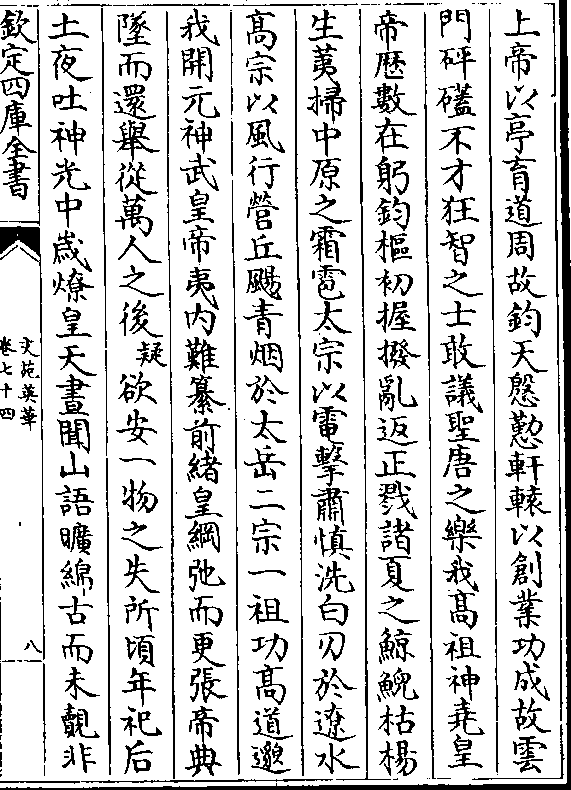 上帝以亭育道周故鈞天慇懃軒轅以創業功成故雲
門砰礚不才狂智之士敢議聖唐之樂我髙祖神堯皇
帝歴數在躬鈞樞初握撥亂返正戮諸夏之鯨鯢枯楊
生荑掃中原之霜雹太宗以電擊肅慎洗白刃於遼水
髙宗以風行營丘颺青烟於太岳二宗一祖功髙道邈
我開元神武皇帝夷内難纂前緒皇綱弛而更張帝典
墜而還舉從萬人之後疑欲安一物之失所頃年祀后
土夜吐神光中歳燎皇天晝聞山語曠綿古而未覿非
欽定四庫全書
文苑英華
卷七十四
八